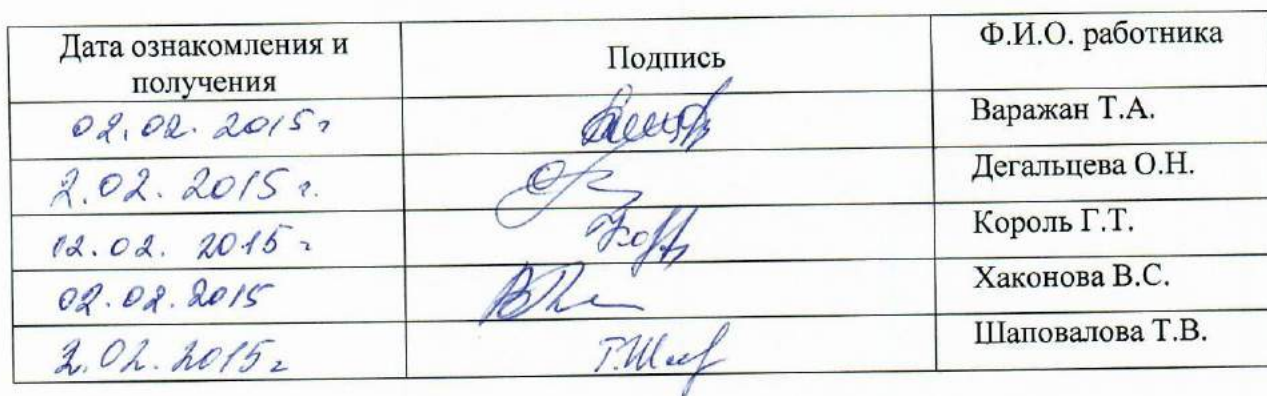 Дата ознакомления и
получения
Подпись
Ф.И.О. работника
02.02.2015г
Варажан Т.А.
2.02.2015г.
Дегальцева О.Н.
02.02.2015г
Король Г.Т.
02.02.2015
Хаконова В.С.
2.02.2015г
Шаповалова Т.В.